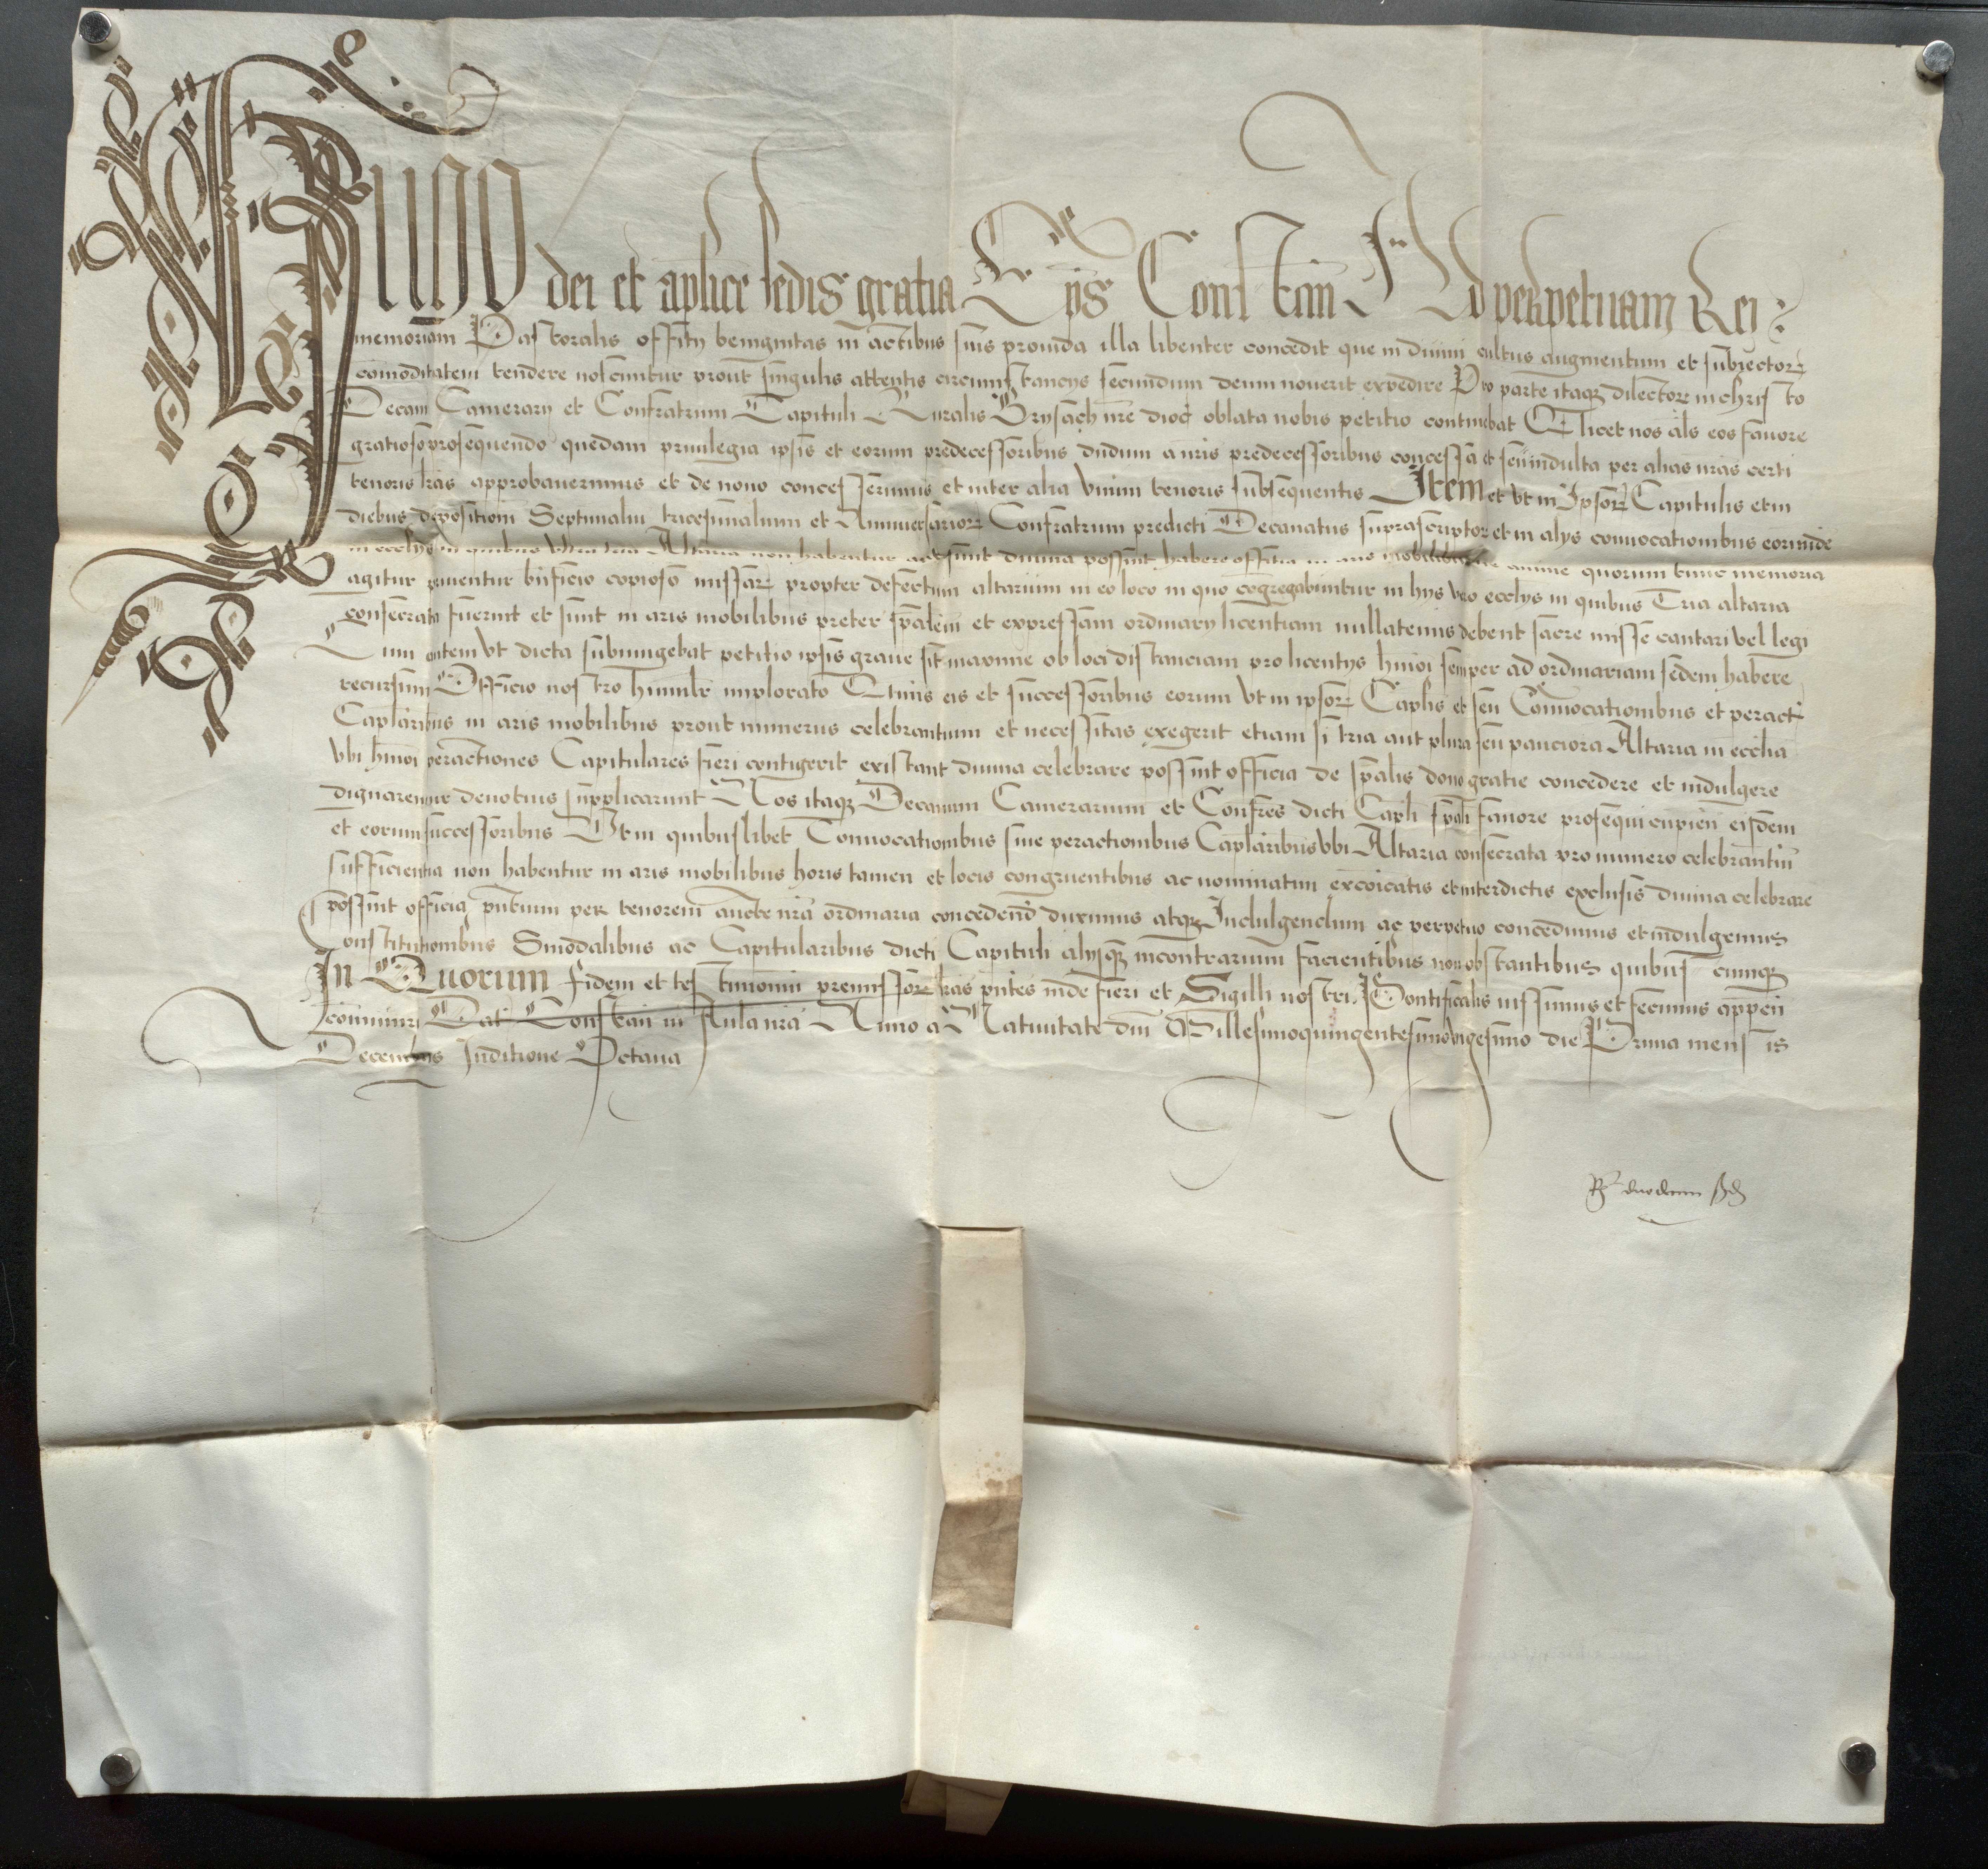 Hugo dei et aplice sedis gratia Eps Constan̄ Ad perpetuam Rei
memoriam Pastoralis offitij benignitas in actibus suis prouida illa libenter concedit que in diuini cultus augmentum et subiector
comoditatem tendere noscuntur prout singulis attentis circumstancijs secundum deum nouerit expedire Pro parte itaqz dilector in christo
Decani Camerarij et Confratrum Capituli Ruralis Brysach nr̄e dioc̄ oblata nobis petitio continebat Q licet nos al̄s eos fauore
gratioso prosequendo quedam priuilegia ipsis et eorum predecessoribus dudum a nr̄is predecessoribus concessa et seu indulta per alias nr̄as certi
tenoris lr̄as approbauerimus et de nouo concesserimus et inter alia vnum tenoris subsequentis Item et vt in Ipsor Capitulis et in
diebus deposition Septimaliū tricesimalium et Anniuersarior Confratrum predicti Decanatus suprascriptor et in alijs conuocationibus eorunde
in ecclijs in quibus vltra tria Altaria non habentur diuina possint habere offitia in aris mobilibus anime quorum tunc memoria
agitur iuuentur bn̄ficio copioso missar propter defectum altarium in eo loco in quo cōgregabuntur in hijs vero ecclijs in quibus Tria altaria
consecrata fuerint et sunt in aris mobilibus preter sp̄alem et expressam ordinarij licentiam nullatenus debent sacre misse cantari vel legi
Cum autem vt dicta subiungebat petitio ipsis graue sit maxime ob loci distanciam pro licentijs hmōi semper ad ordinariam sedem habere
recursum Officio nostro humilr̄ implorato Qtinus eis et successoribus eorum vt in ipsor Caplis et seu Conuocationibus et peract
Caplaribus in aris mobilibus prout numerus celebrantium et necessitas exegerit etiam si tria aut plura seu pauciora Altaria in ecclia
vbi hmōi peractiones Capitulares fieri contigerit existant diuina celebrare possint officia de sp̄alis dono gratie concedere et indulgere
dignaremur deuotius supplicarunt Nos itaqz Decanum Camerarium et Confr̄es dicti Capli sp̄ali fauore prosequi cupien̄ eisdem
et eorum successoribus Vt in quibuslibet Conuocationibus siue peractionibus Caplaribus vbi Altaria consecrata pro numero celebrantiū
sufficientia non habentur in aris mobilibus horis tamen et locis congruentibus ac nominatim excōicatis et interdictis exclusis diuina celebrare
possint officia pn̄tium per tenorem aucte nr̄a ordinaria concedend̄ duximus atqz Indulgendum ac perpetuo concedimus et indulgemus
Constitutionibus Sinodalibus ac Capitularibus dicti Capituli alijsqz incontrarium facientibus non obstantibus quibuscumqz
In Quorum fidem et testimoniū premissor lr̄as pn̄tes inde fieri et Sigilli nostri Pontificalis iussimus et fecimus appen̄
cōmuniri Dat̄ Constan̄ in Aula nr̄a Anno a Natiuitate dn̄i Millesimoquingentesimovigesimo die Prima mensis
Decembris Inditione Octaua
Rta duodecim ßd